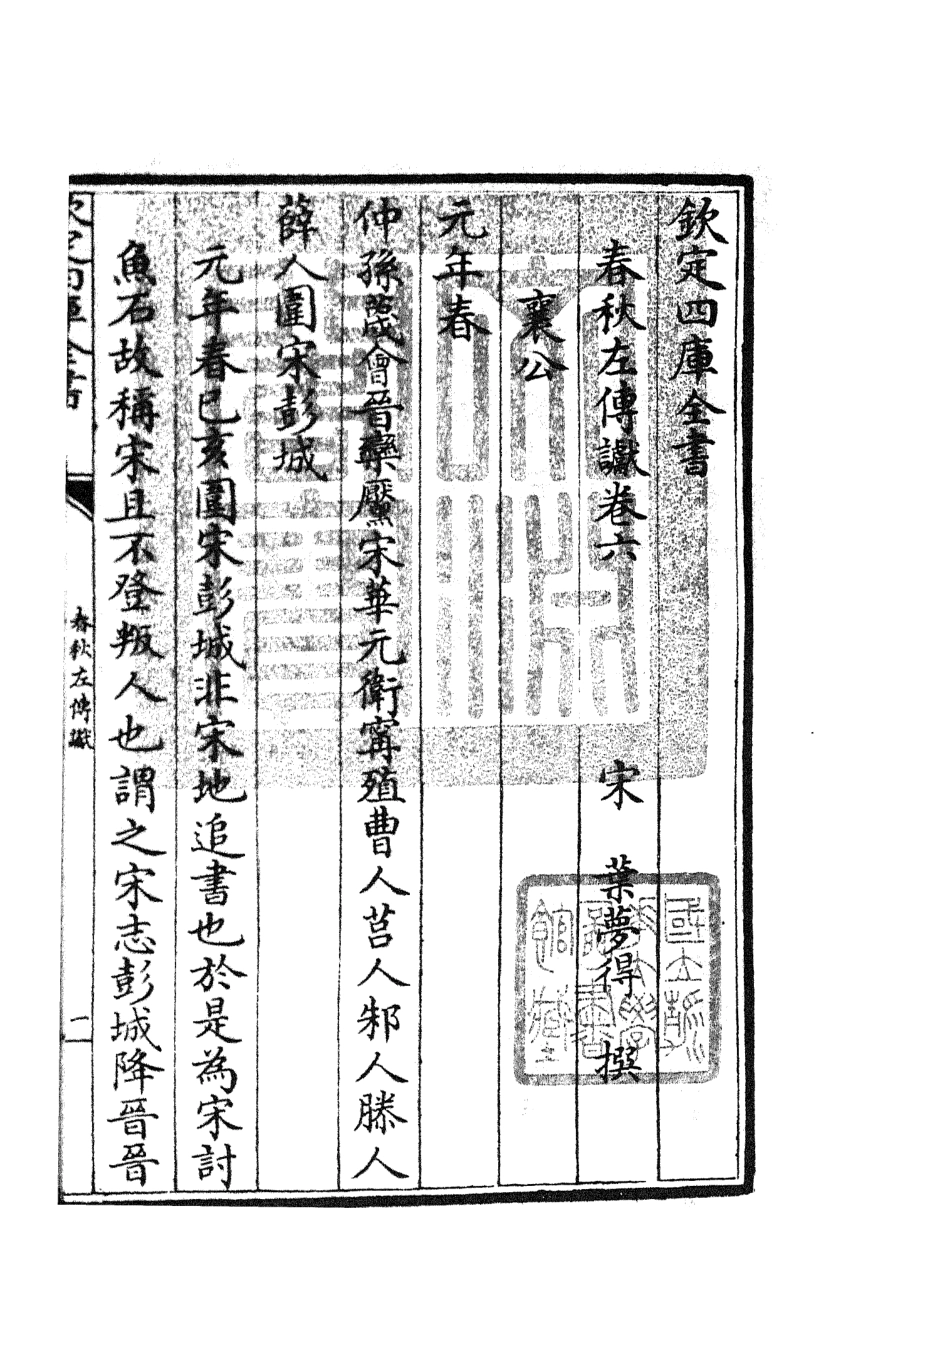 欽定四庫全書
春秋左傳讞卷六 宋 葉夢得 撰
襄公
元年春
仲孫蔑會晉欒黶宋華元衛甯殖曹人莒人邾人滕人
薛人圍宋彭城
元年春已亥圍宋彭城非宋地追書也於是為宋討
魚石故稱宋且不登叛人也謂之宋志彭城降晉晉
欽定四庫全書
春秋左傳讞
一